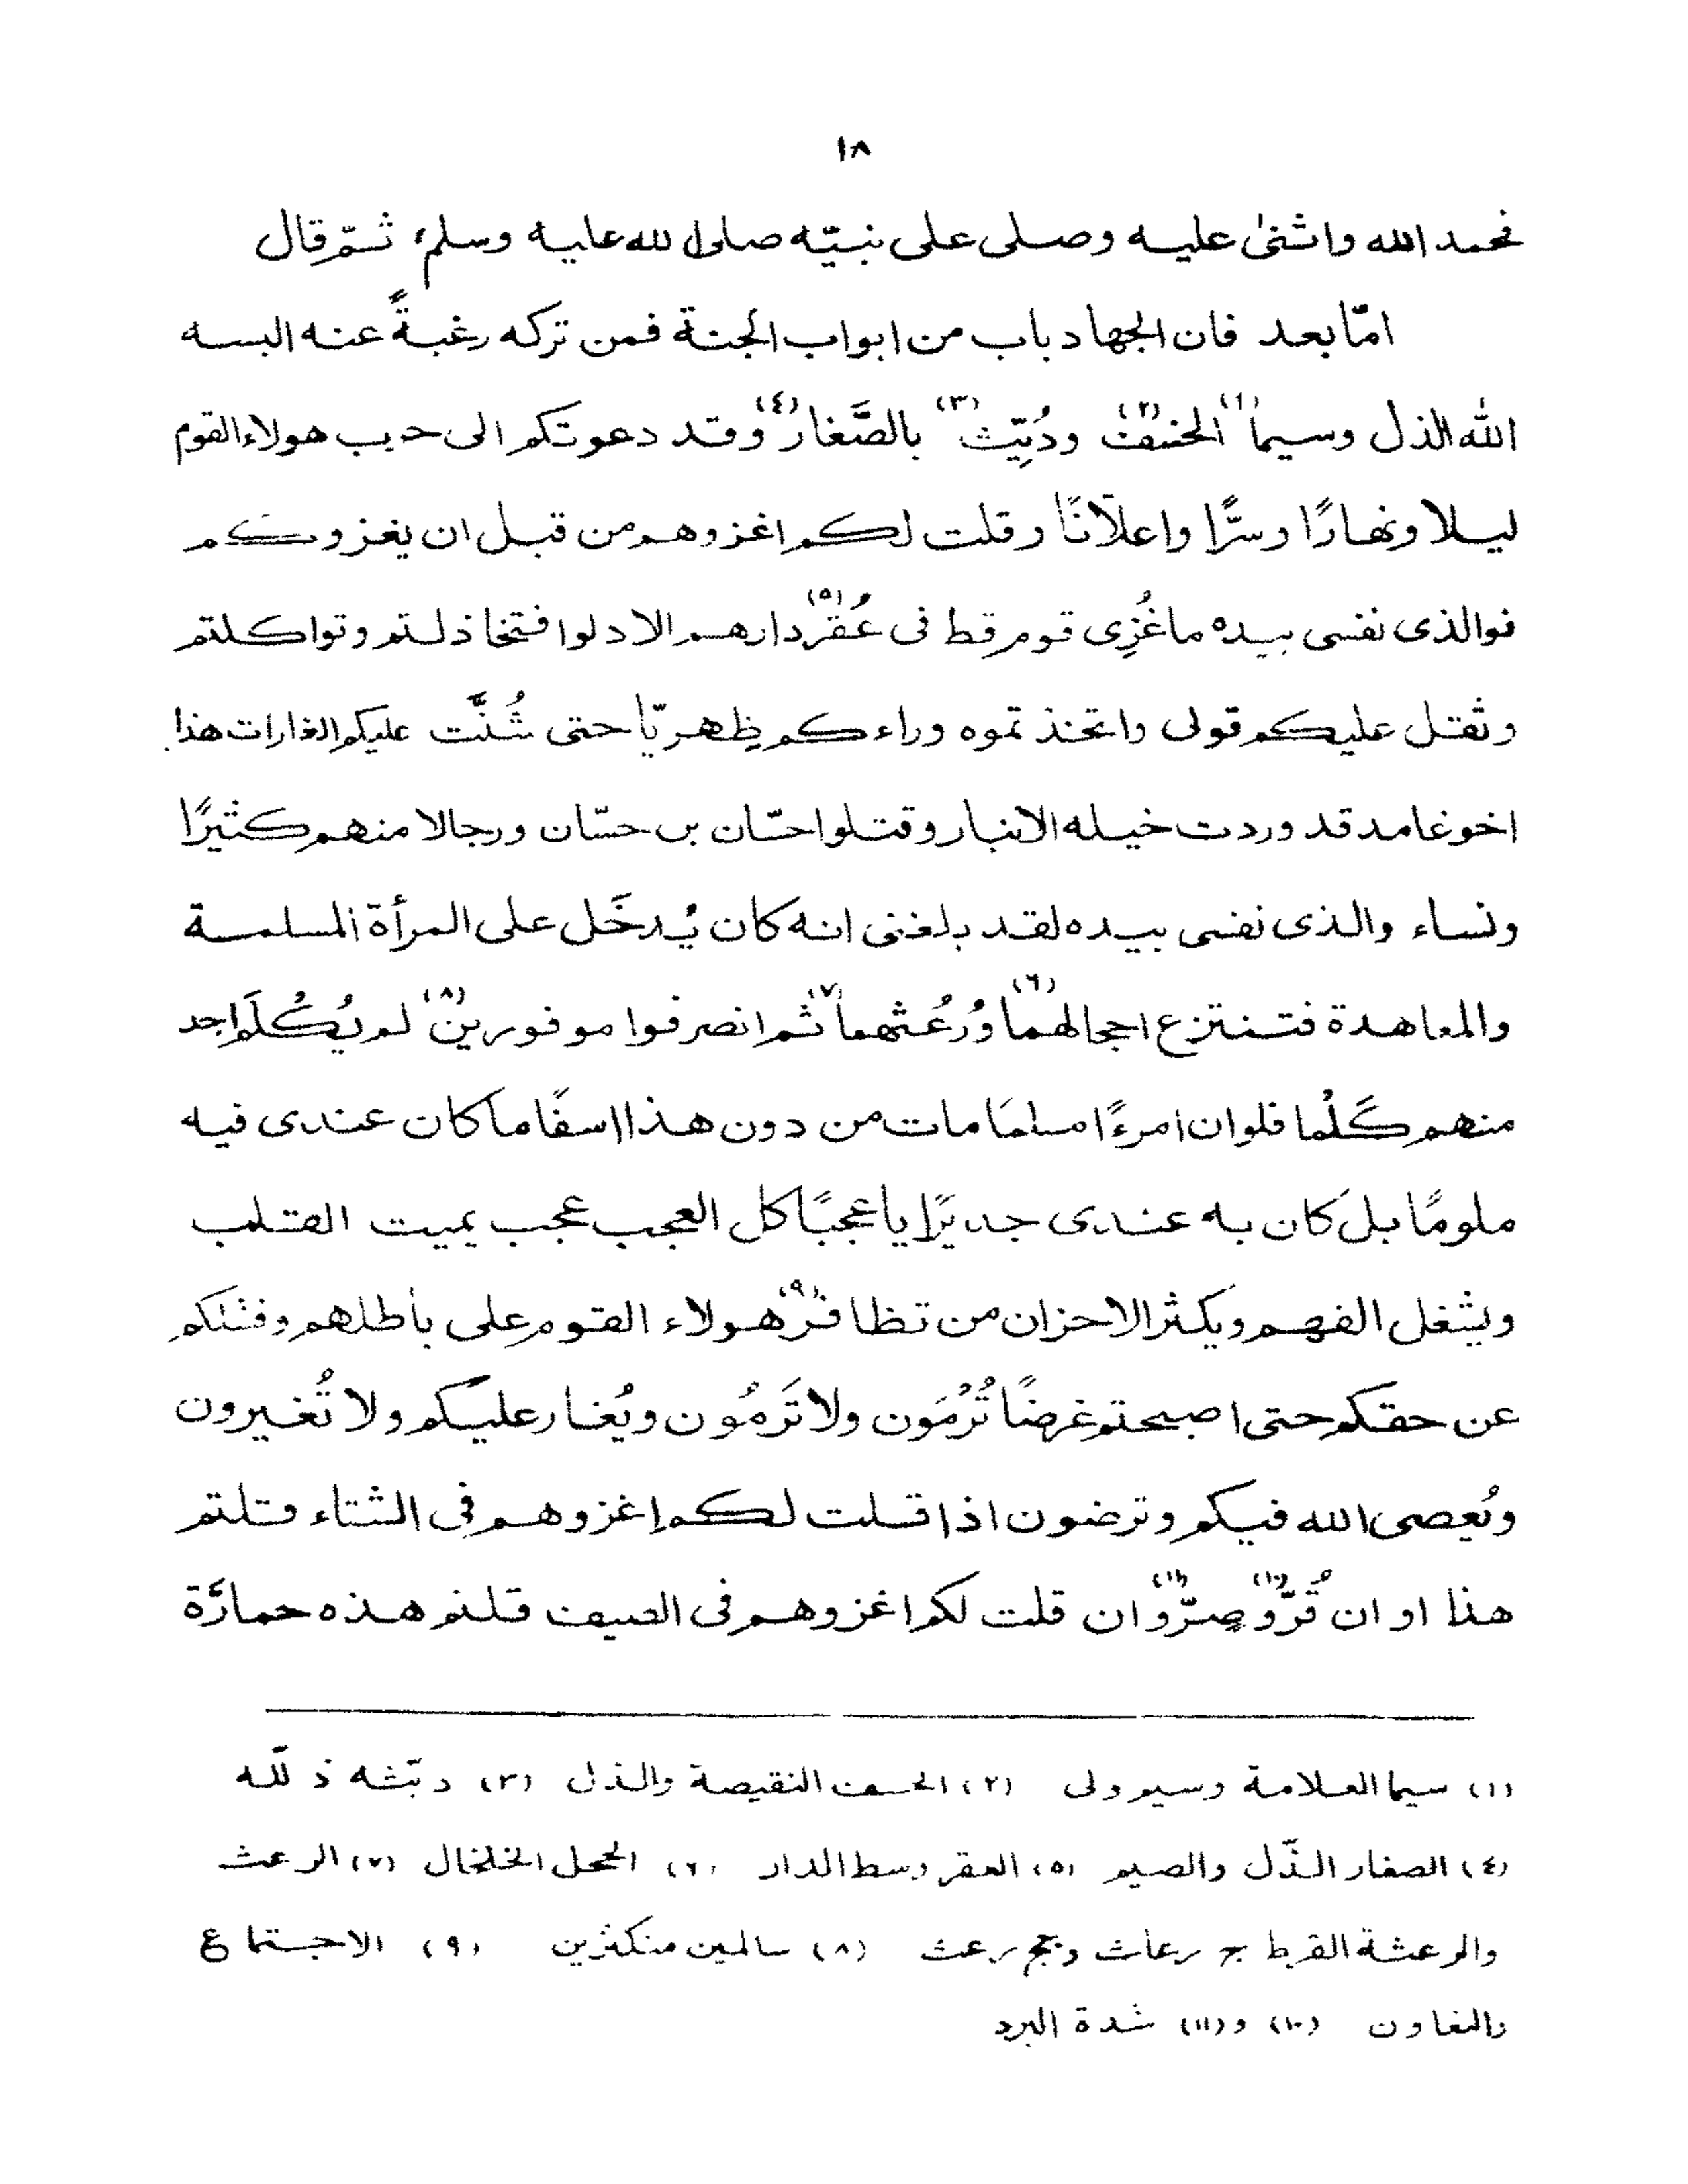 ١٨
فحمد الله واثنىٰ عليه وصلى على نبيّه صلى الله عليه وسلم، ثمّ قال
امّا بعد فان الجهاد باب من ابواب الجنة فمن تركه رغبةً عنه البسه
الله الذل وسيما(١) الخسف(٢) ودُيِّث(٣) بالصَّغار(٤) وقد دعوتكم الى حرب هولاء القوم
ليلا ونهارًا وسرًّا واعلانًا وقلت لكم اغزوهم من قبل ان يغزوكم
فوالذى نفسى بيده ماغُزِى قوم قط فى عُقْر(٥) دارهم الا دلوا فتخاذلتم وتواكلتم
وثقل عليكم قولى واتخذتموه وراءكم ظِهريّا حتى شُنَّت عليكم الغارات هذا
اخوغامد قد وردت خيله الانبار وقتلوا حسّان بن حسّان ورجالا منهم كثيرًا
ونساء والذى نفسى بيده لقد بلغنى انه كان يُدخَل على المرأة المسلمة
والمعاهدة فتنتزع احجالهما(٦) ورُعُثهما(٧) ثم انصرفوا موفورين(٨) لم يُكْلَم واحد
منهم كَلْما فلوان امرءًا مسلمًا مات من دون هذا اسفًا ماكان عندى فيه
ملومًا بل كان به عندى جديرًا ياعجبًا كل العجب عجب يميت القلب
ويشغل الفهم ويكثر الاحزان من تظافر(٩) هولاء القوم على باطلهم وفشلكم
عن حقكم حتى اصبحتم غرضًا تُرْمَون ولا تَرمُون ويُغار عليكم ولا تُغيرون
ويُعصى الله فيكم وترضون اذا قلت لكم اغزوهم فى الشتاء قلتم
هذا اوان قُرّ(١٠) وصِرّ(١١) وان قلت لكم اغزوهم فى الصيف قلتم هذه حمارَّة
(١) سيما العلامة وسيم ولى (٢) الخسف النقيصة والذل (٣) ديّثه ذلّله
(٤) الصغار الذّل والضيم (٥) العقر وسط الدار (٦) الحجل الخلخال (٧) الرعث
والرعثة القرط ج رعاث وجج رعث (٨) سالمين متكثرين (٩) الاجتماع
والتعاون (١٠) و(١١) شدة البرد